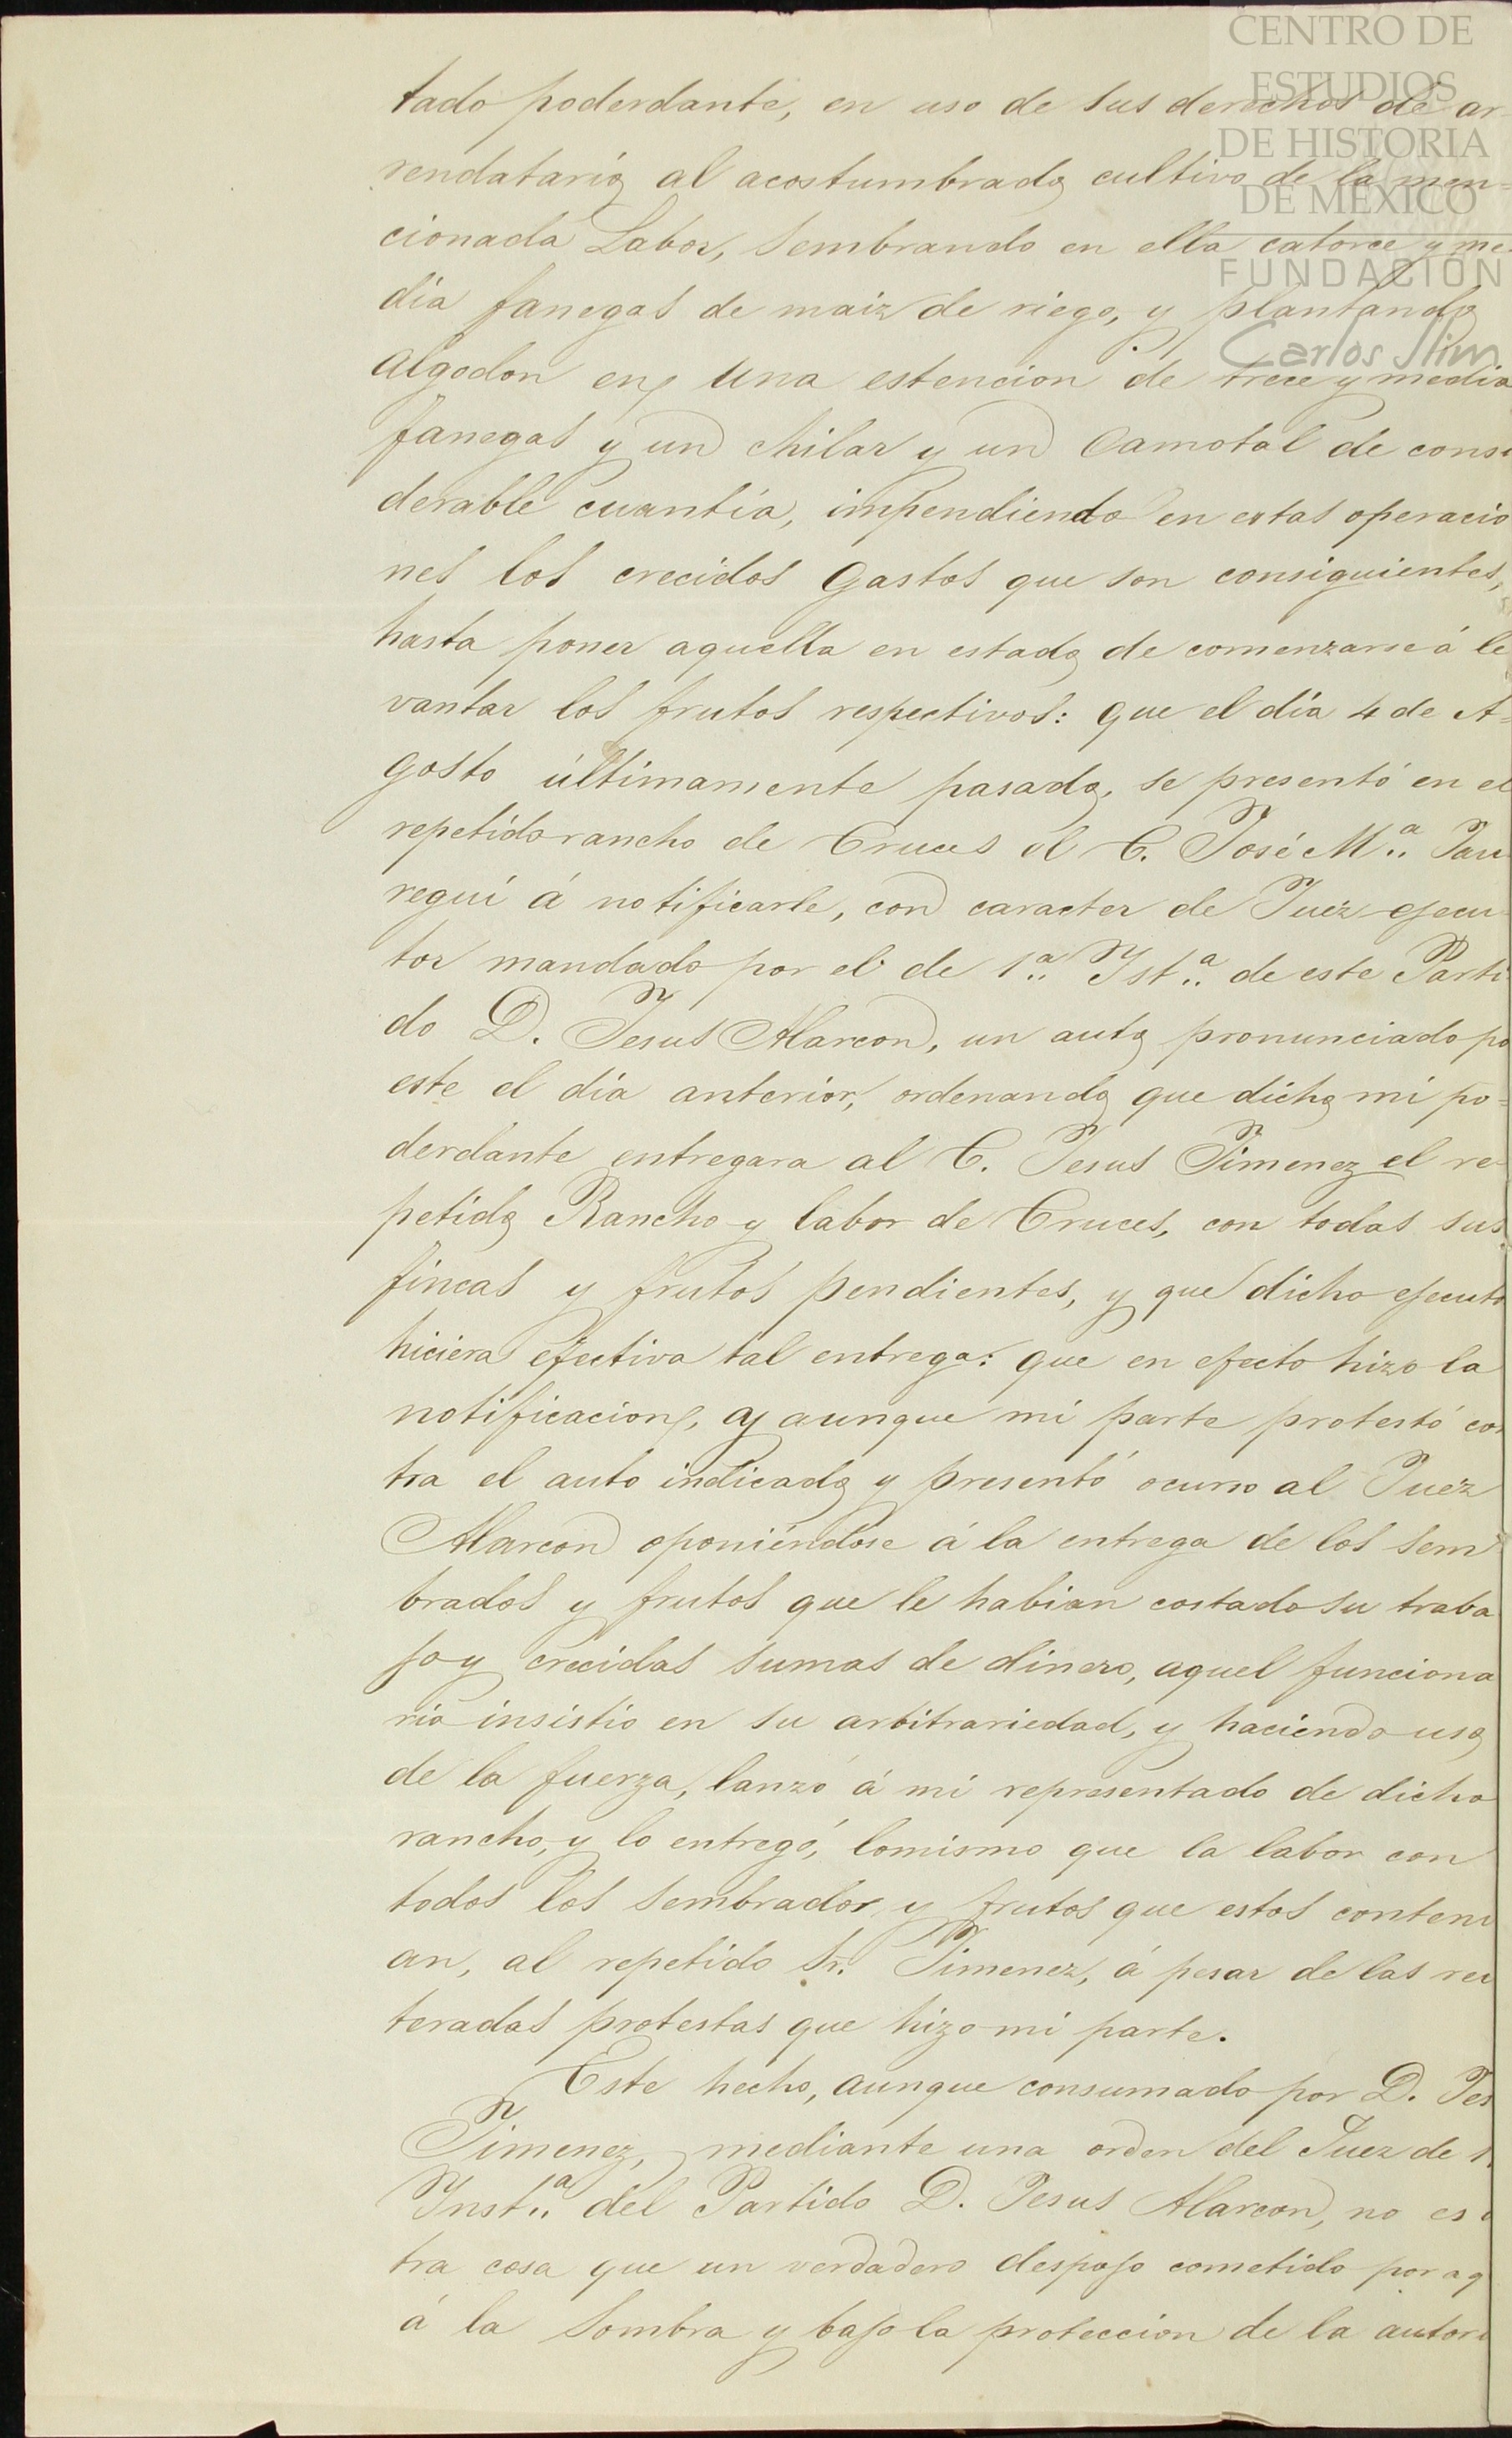 CENTRO DE
ESTUDIOS
DE HISTORIA
DE MÉXICO
FUNDACIÓN
Carlos Slim
tado poderdante, en uso de sus derechos de ar
rendatario al acostumbrado cultivo de la men=
cionada Labor, sembrando en ella catorce y me
dia fanegas de maiz de riego, y plantando
algodon en una estencion de trece y media
fanegas y un chilar y un Camotal de consi
derable cuantía, impendiendo en estas operacio
nes los crecidos gastos que son consiguientes,
hasta poner aquella en estado de comenzarse á le
vantar los frutos respectivos: que el día 4 de A=
gosto últimamente pasado, se presentó en el
repetido rancho de Cruces el C. José M.ª Jau
regui á notificarle, con caracter de Juez ejecu
tor mandado por el de 1.ª Ist.ª de este Parti
do D. Jesus Alarcon, un auto pronunciado po
este el día anterior, ordenando que dicho mi po=
derdante entregara al C. Jesus Jimenez el re
petido Rancho y labor de Cruces, con todas sus
fincas y frutos pendientes, y que dicho ejecuto
hiciera efectiva tal entrega: que en efecto hizo la
notificacion, y aunque mi parte protestó con
tra el auto indicado y presentó ocurso al Juez
Alarcon oponiéndose á la entrega de los sem
brados y frutos que le habian costado su traba
jo y crecidas sumas de dinero, aquel funciona
rio insistio en su arbitrariedad, y haciendo uso
de la fuerza, lanzó á mi representado de dicho
rancho, y lo entregó, lo mismo que la labor con
todos los sembrados y frutos que estos conteni
an, al repetido Sr. Jimenez, á pesar de las rei
teradas protestas que hizo mi parte.
Este hecho, aunque consumado por D. Jes
Jimenez, mediante una orden del Juez de 1.
Inst.ª del Partido D. Jesus Alarcon, no es o
tra cosa que un verdadero despojo cometido por aq
á la sombra y bajo la proteccion de la autori